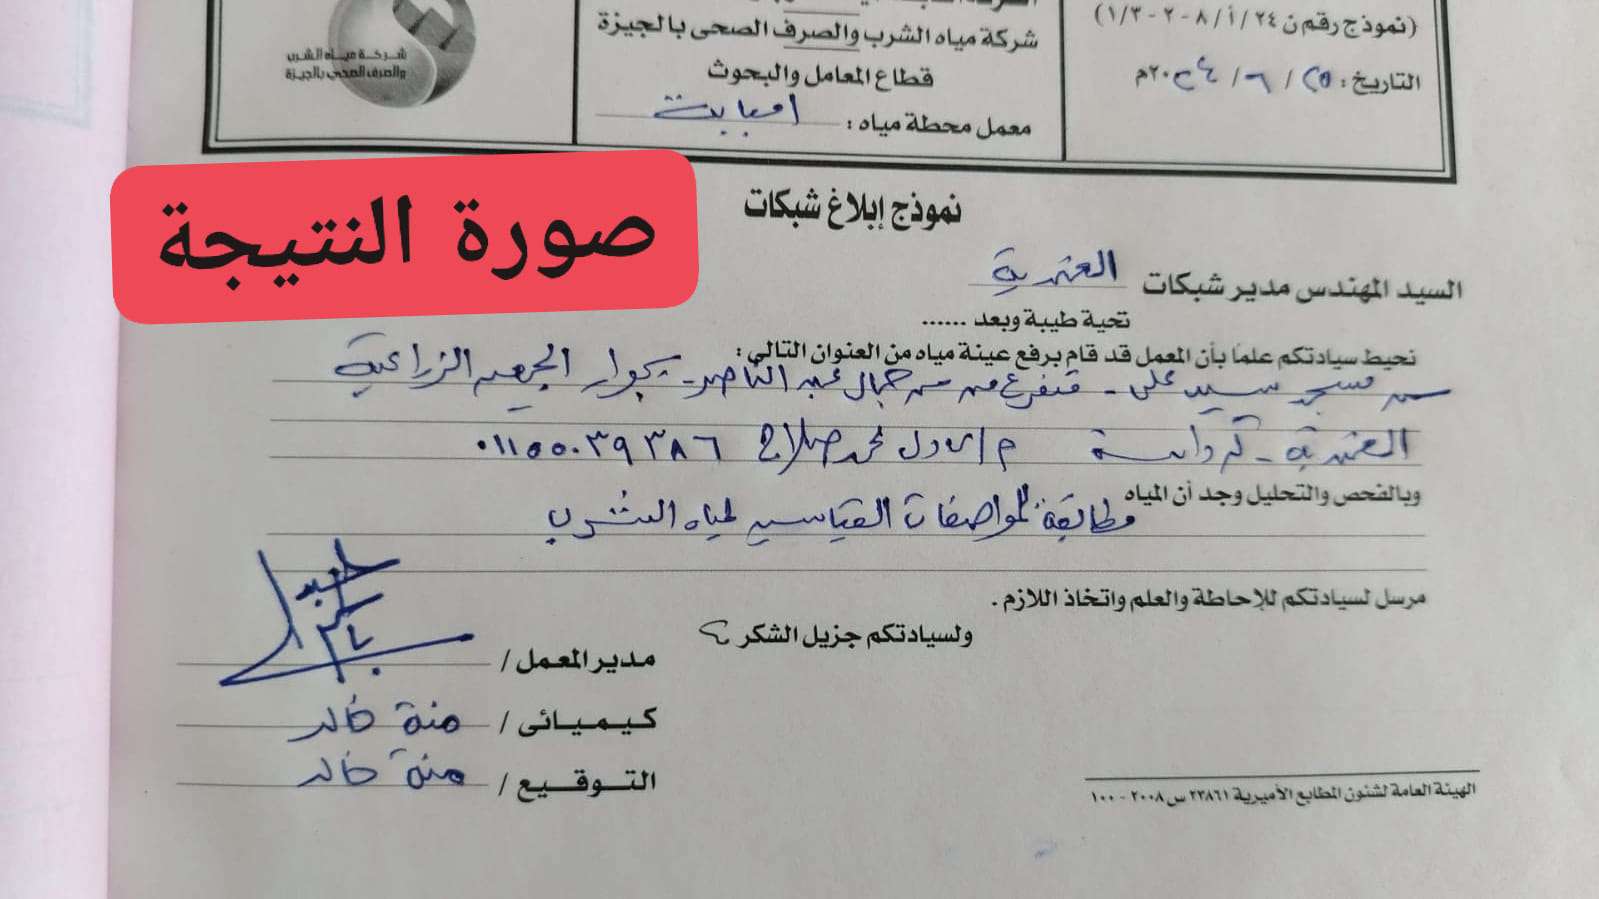 (نموذج رقم ن ٢٤ / أ / ٨ - ٢ - ١/٣)
التاريخ : ٢٥ / ٦ / ٢٠٢٤م
شركة مياه الشرب والصرف الصحى بالجيزة
قطاع المعامل والبحوث
معمل محطة مياه : امبابة
شركة مياه الشرب
والصرف الصحي بالجيزة
صورة النتيجة
نموذج إبلاغ شبكات
السيد المهندس مدير شبكات
تحية طيبة وبعد ......
نحيط سيادتكم علما بأن المعمل قد قام برفع عينة مياه من العنوان التالي :
ش مسجد سيد على - متفرع من ش جمال عبد الناصر - بجوار الجمعيه الزراعية
كرداسة م / محمد صلاح ٠١١٥٥٠٣٩٣٨٦
وبالفحص والتحليل وجد أن المياه
مطابقة للمواصفات القياسيه لمياه الشرب
مرسل لسيادتكم للإحاطة والعلم واتخاذ اللازم .
ولسيادتكم جزيل الشكر
مدير المعمل /
كيميائى / منة خالد
التوقيع / منة خالد
الهيئة العامة لشئون المطابع الأميرية ٢٣٨٦١ س ٢٠٠٨ - ١٠٠